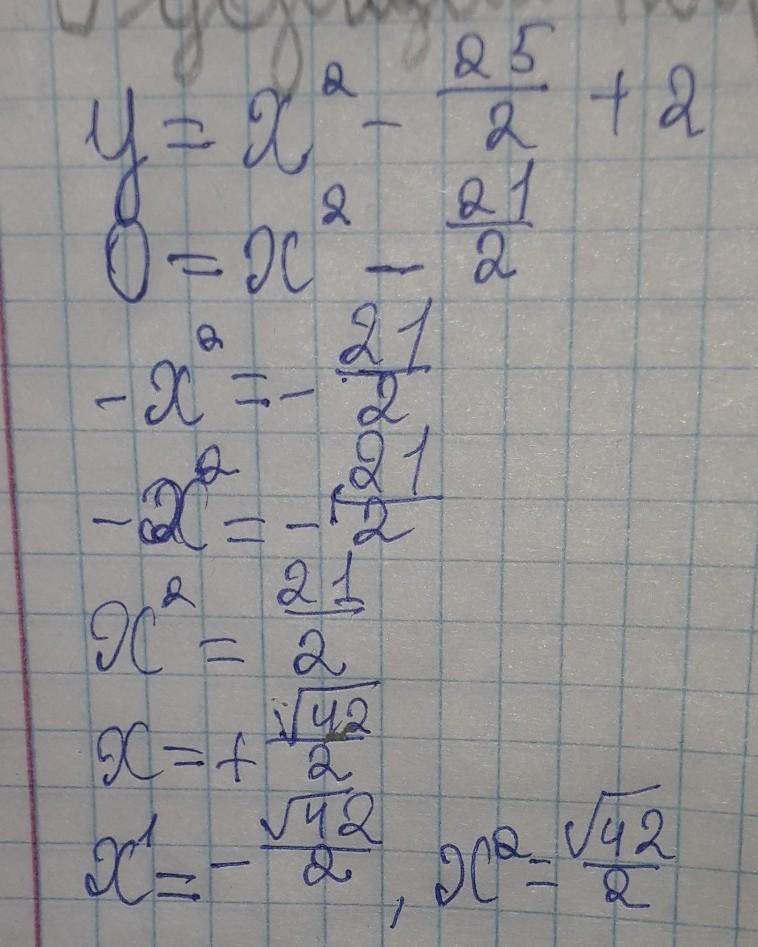 y = x² - 25/2 + 2
0 = x² - 21/2
-x² = - 21/2
-x² = - 21/2
x² = 21/2
x = + √42/2
x¹ = - √42/2 , x² = √42/2